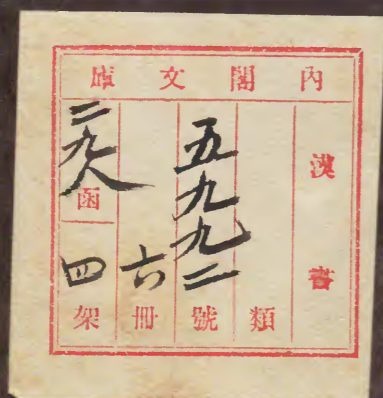 內閣文庫
漢書
類
五九九二號
六冊
二九八函
四架